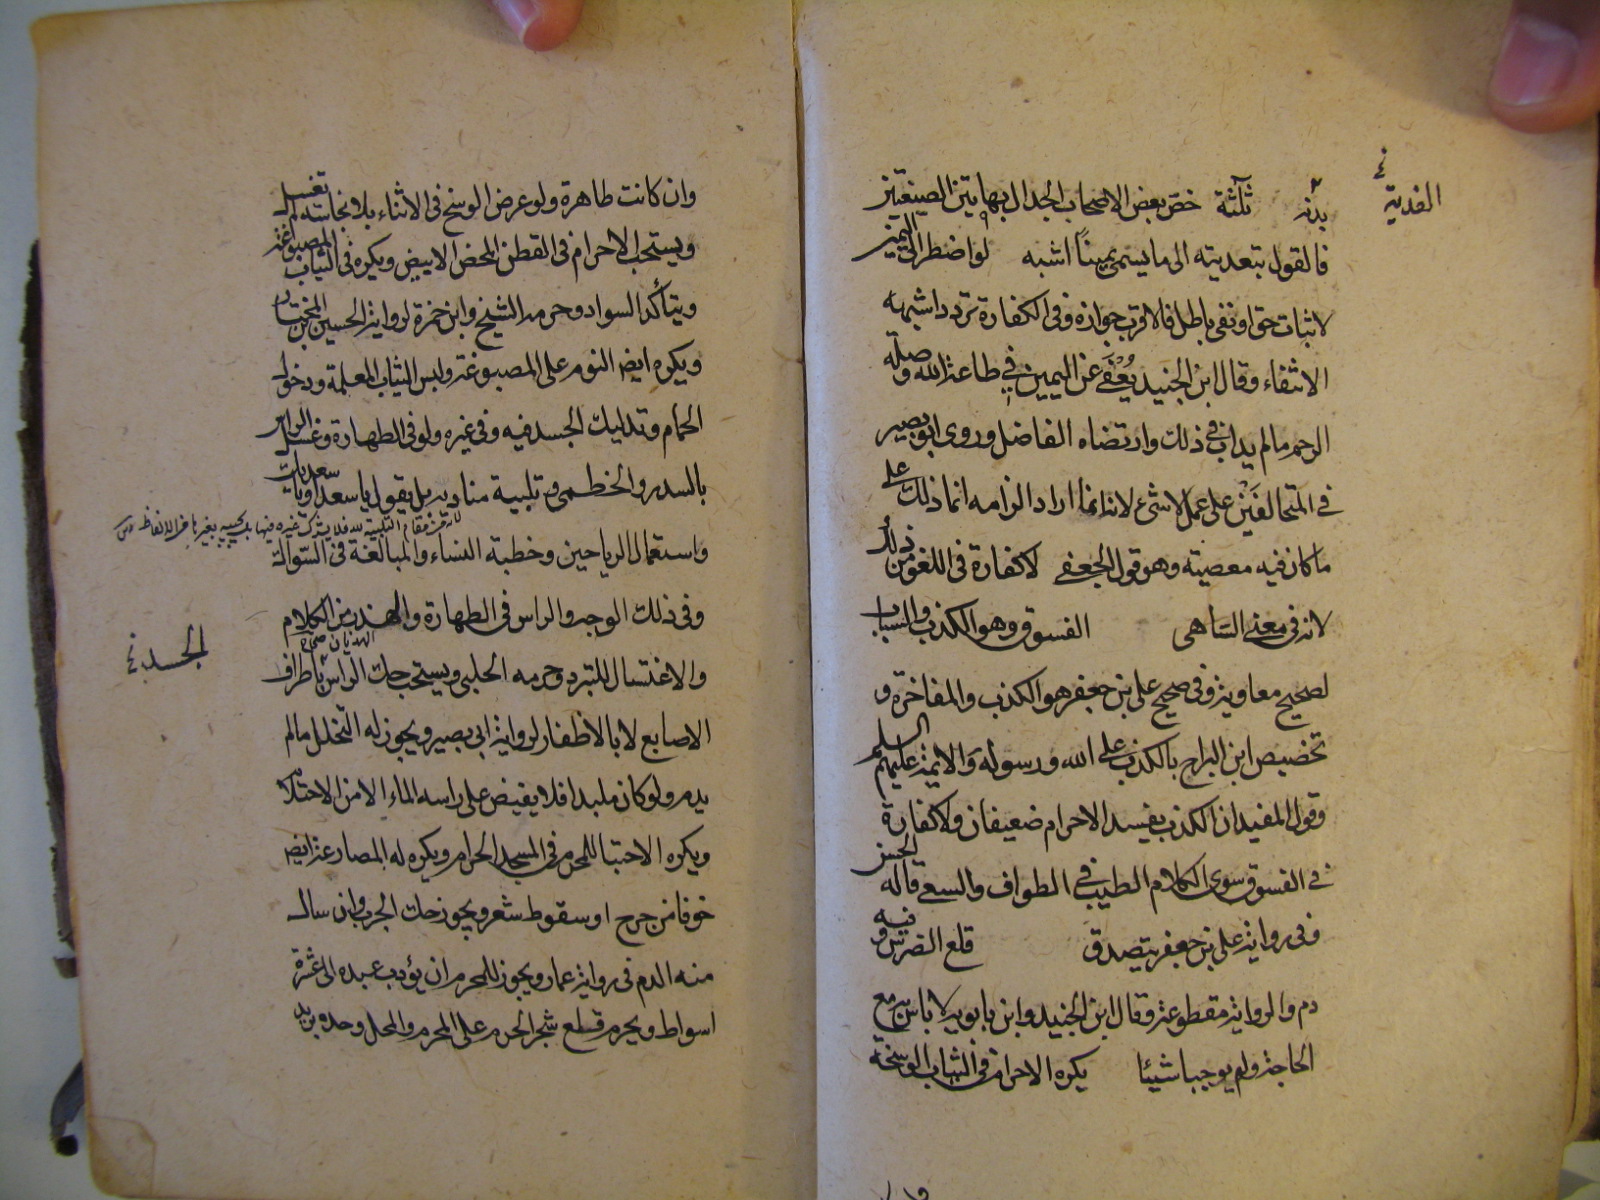 الفدية
بدنة ثلثة خص بعض الاصحاب الجدال بهاتين الصيغتين
فالقول بتعديته الى ما يسمى يمينا اشبه لو اضطر الى اليمين
لاثبات حق او نفى باطل فالاقرب جوازه وفى الكفارة تردد اشبهه
الانتفاء وقال ابن الجنيد يعفى عن اليمين في طاعة الله وصلة
الرحم ما لم يداب في ذلك وارتضاه الفاضل وروى ابو بصير
في المتحالفين على عمل لا شيء لانه انما اراد الزامه انما ذلك على
ما كان فيه معصية وهو قول الجعفي لا كفارة فى اللغو من ذلك
لانه فى معنى الساهى الفسوق وهو الكذب والسباب
لصحيح معاوية وفى صحيح على بن جعفر هو الكذب والمفاخرة و
تخصيص ابن البراج بالكذب على الله ورسوله والائمة عليهم السلم
وقول المفيد ان الكذب يفسد الاحرام ضعيفان ولا كفارة
في الفسوق سوى الكلام الطيب في الطواف والسعي قاله الحسن
وفى رواية على بن جعفر يتصدق قلع الضرس وفيه
دم والرواية مقطوعة وقال ابن الجنيد وابن بابويه لا باس به مع
الحاجة ولم يوجبا شيئا يكره الاحرام في الثياب الوسخة
وان كانت طاهرة ولو عرض الوسخ فى الاثناء بلا نجاسة لم تغسل
ويستحب الاحرام فى القطن المحض الابيض ويكره فى الثياب المصبوغة
ويتأكد السواد وحرمه الشيخ وابن حمزة لرواية الحسين المختار
ويكره ايضا النوم على المصبوغة ولبس الثياب المعلمة ودخول
الحمام وتدليك الجسد فيه وفى غيره ولو فى الطهارة وغسل الراس
بالسدر والخطمى وتلبية مناديه بل يقول يا سعد او يا سعديك
واستعمال الرياحين وخطبة النساء والمبالغة فى السواك
وفى ذلك الوجه والراس فى الطهارة والهذر من الكلام
الجسد
والاغتسال للتبرد وحرمه الحلبى ويستحب حك الراس باطراف
الاصابع لا بالاظفار لرواية ابى بصير ويجوز له التخلل ما لم
يدم ولو كان ملبدا فلا يفيض على راسه الماء الا من الاحتلام
ويكره الاحتبا للمحرم فى المسجد الحرام ويكره له المصارعة ايضا
خوفا من جرح او سقوط شعر ويجوز حك الجرب وان سال
منه الدم فى رواية عمار ويجوز للمحرم ان يؤدب عبده الى عشرة
اسواط ويحرم قطع شجر الحرم على المحرم والمحل وحده بريد